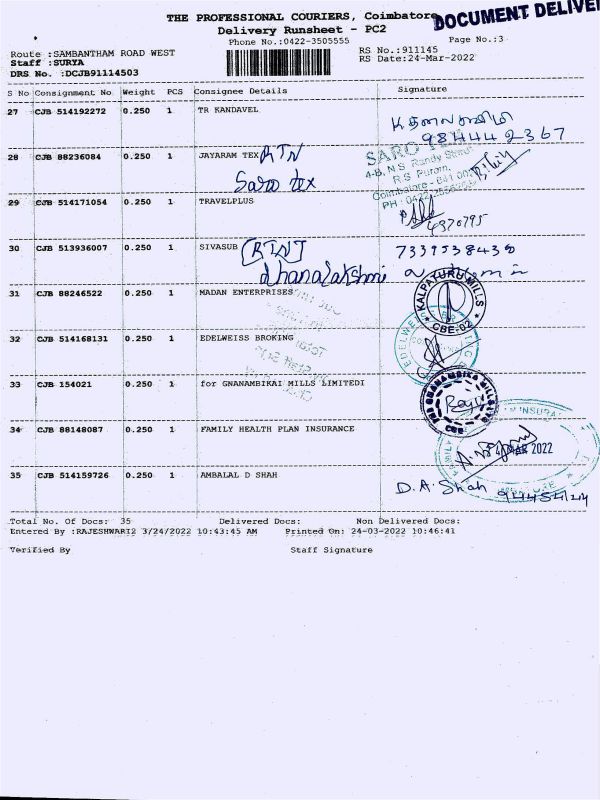 THE PROFESSIONAL COURIERS, Coimbatore
DOCUMENT DELIVE
Delivery Runsheet - PC2
Phone No.:0422-3505555
Page No.:3
Route :SAMBANTHAM ROAD WEST
RS No.:911145
Staff :SURYA
RS Date:24-Mar-2022
DRS No. :DCJB91114503
S No Consignment No Weight PCS Consignee Details Signature
27 CJB 514192272 0.250 1 TR KANDAVEL
984442367
28 CJB 88236084 0.250 1 JAYARAM TEX RTN
Saro tex
SARO TEX
R.S Puram,
29 CJB 514171054 0.250 1 TRAVELPLUS
4370795
30 CJB 513936007 0.250 1 SIVASUB (RTN)
dhanalakshmi
31 CJB 88246522 0.250 1 MADAN ENTERPRISES
KALPATURU MILLS
CBE-02
32 CJB 514168131 0.250 1 EDELWEISS BROKING
33 CJB 154021 0.250 1 for GNANAMBIKAI MILLS LIMITEDI
34 CJB 88148087 0.250 1 FAMILY HEALTH PLAN INSURANCE
MAR 2022
35 CJB 514159726 0.250 1 AMBALAL D SHAH
D.A. Shah
Total No. Of Docs: 35 Delivered Docs: Non Delivered Docs:
Entered By :RAJESHWARI2 3/24/2022 10:43:45 AM Printed On: 24-03-2022 10:46:41
Verified By Staff Signature